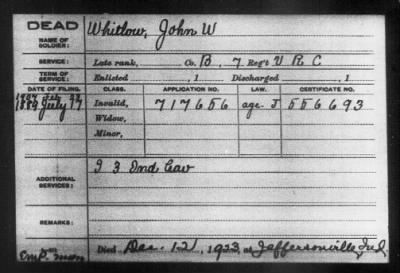 DEAD
NAME OF SOLDIER: Whitlow, John W
SERVICE: Late rank, Co. B, 7 Reg't V R C
TERM OF SERVICE: Enlisted , 1 Discharged , 1
DATE OF FILING. CLASS. APPLICATION NO. LAW. CERTIFICATE NO.
1889 July 17 Invalid, 717656 age. J 556693
Widow,
Minor,
I 3 Ind Cav
ADDITIONAL SERVICES:
REMARKS:
Died Dec. 12, 1923, at Jeffersonville, Ind